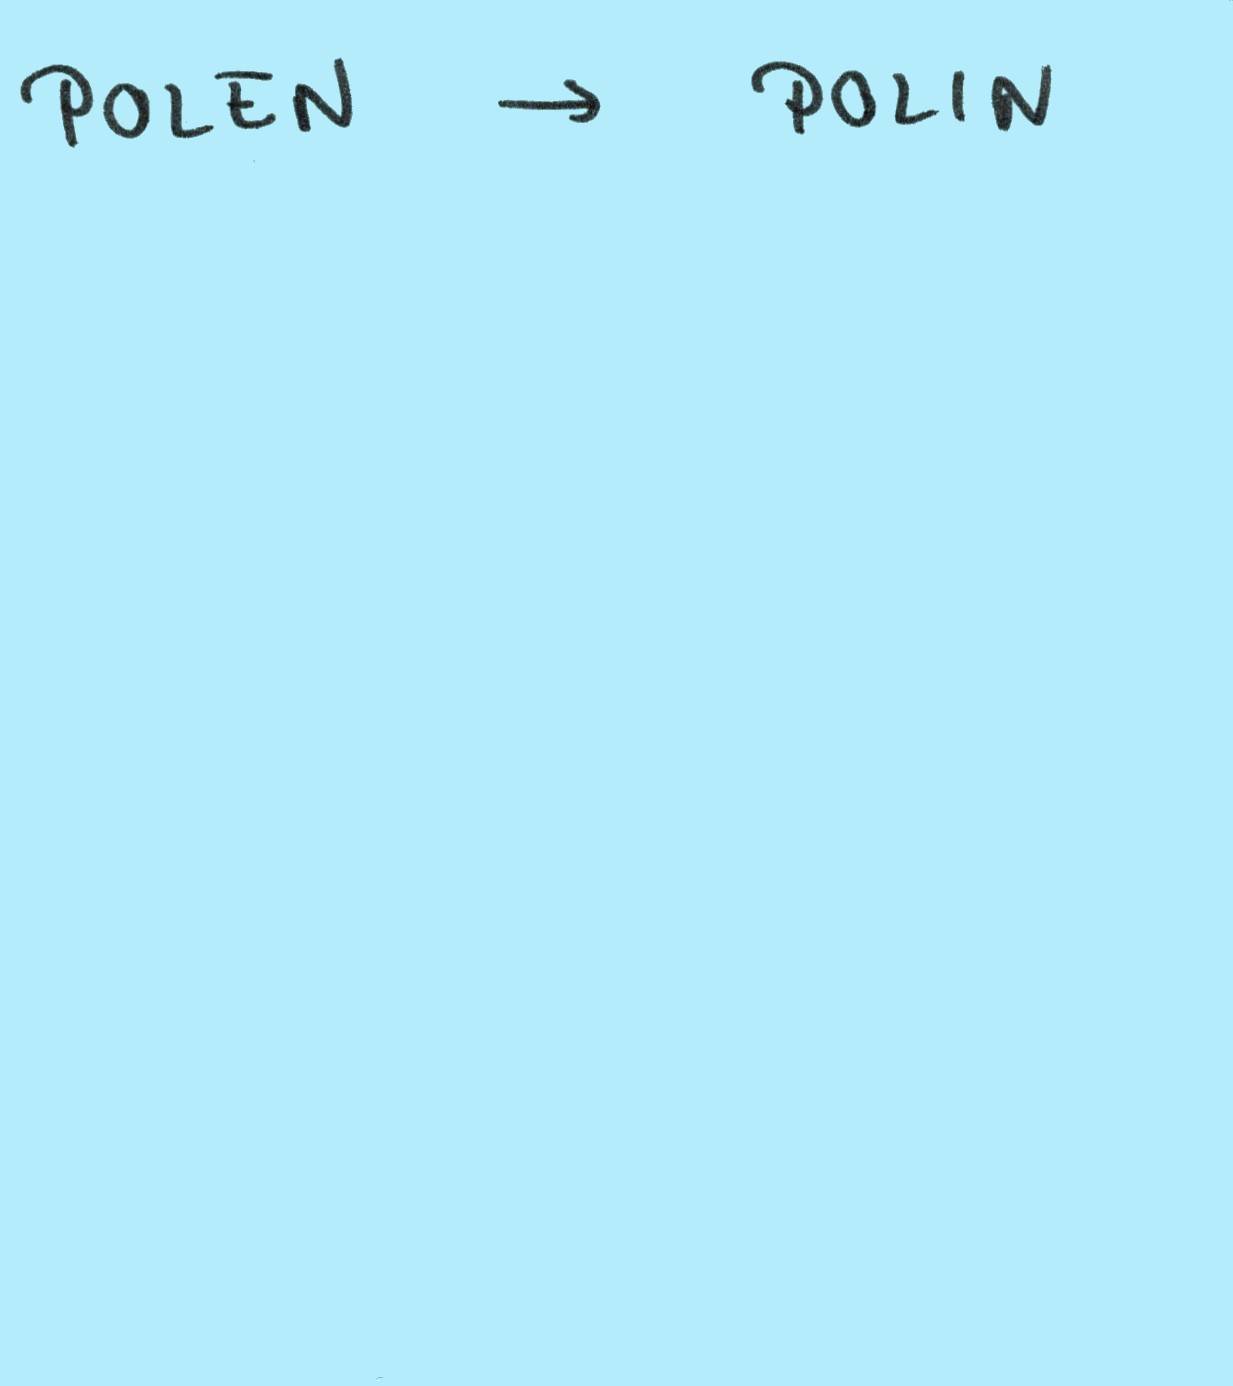 POLEN → POLIN